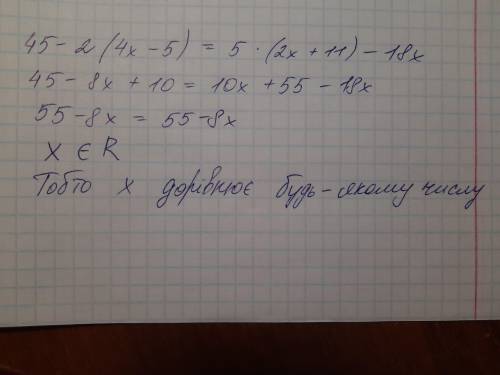 45 - 2 (4x - 5) = 5 · (2x + 11) - 18x
45 - 8x + 10 = 10x + 55 - 18x
55 - 8x = 55 - 8x
x ∈ R
Тобто x дорівнює будь-якому числу